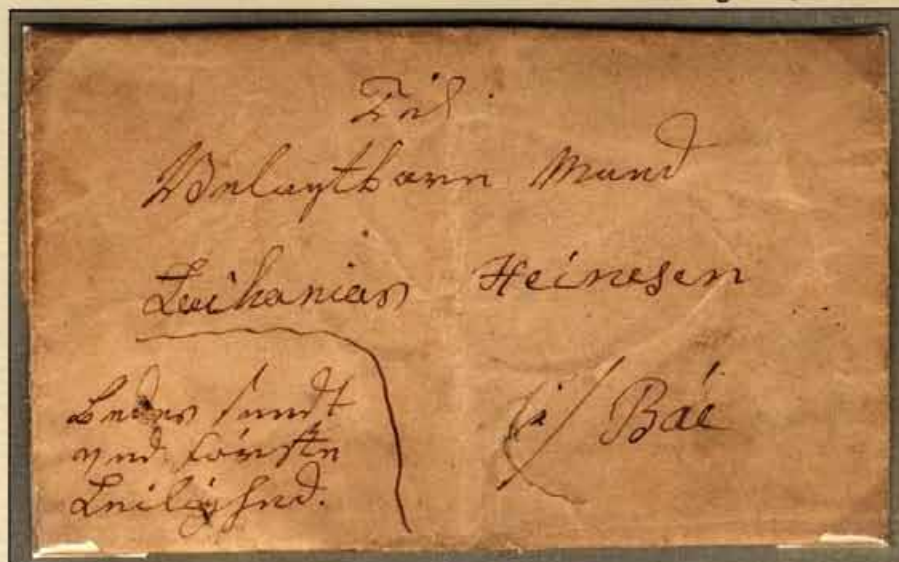 Til
Velagtbare Mand
Zacharias Heinesen
i/ Bøe
Bedes sendt
ved første
Leilighed.